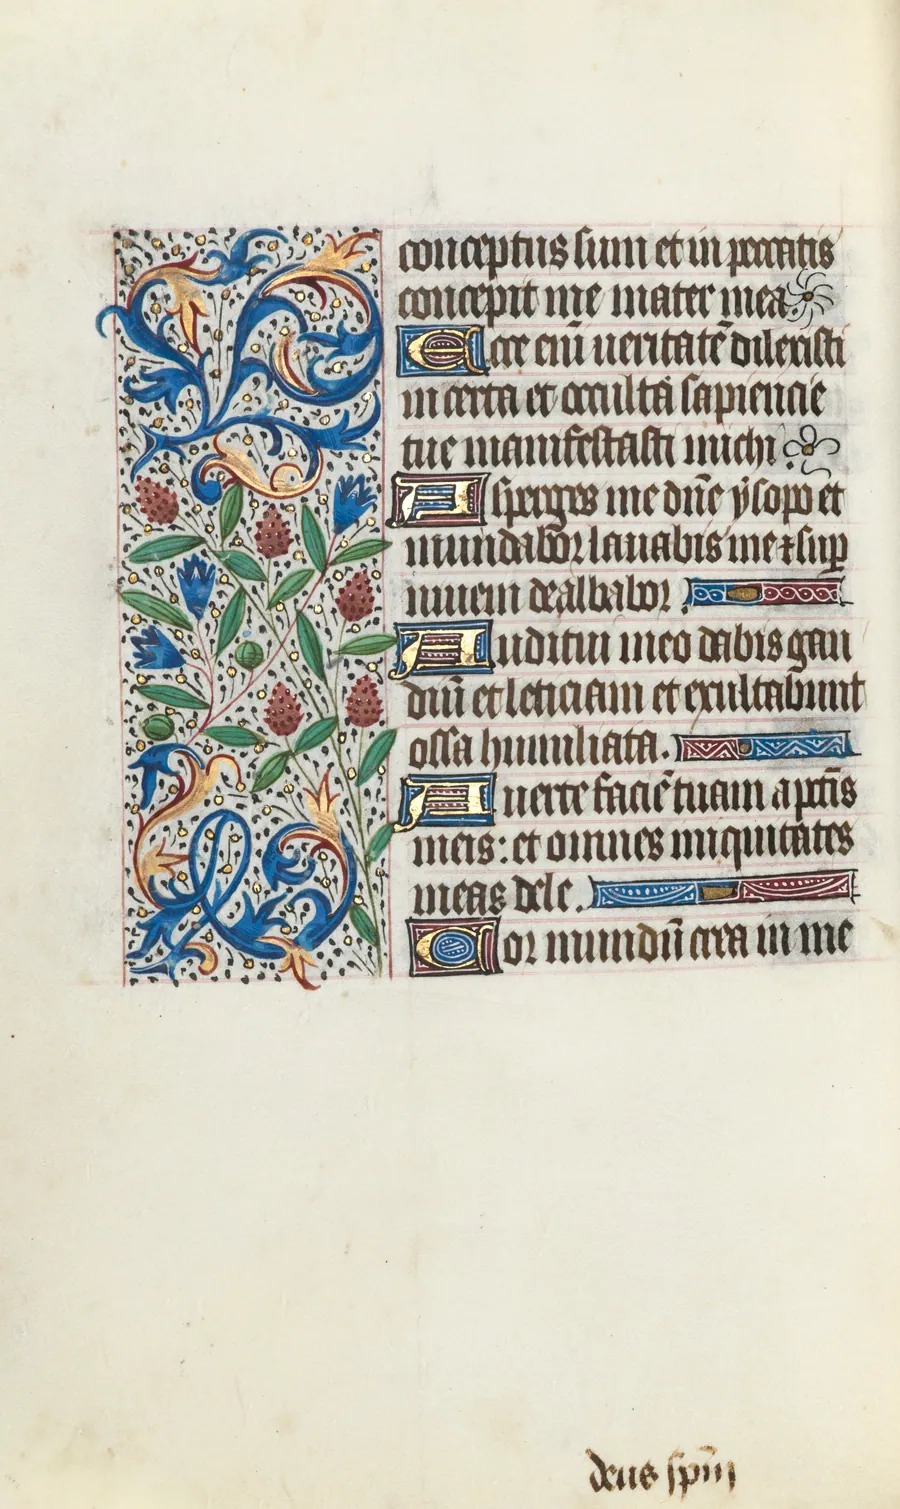 conceptus sum et in peccatis
concepit me mater mea.
Ecce eni̅ ueritate̅ dilexisti
incerta et occulta sapiencie
tue manifestasti michi.
Asperges me dn̅e ysopo et
mundabor lauabis me ⁊ sup̱
niuem dealbabor.
Auditui meo dabis gau
diu̅ et leticiam et exultabunt
ossa humiliata.
Auerte facie̅ tuam a pcc̅is
meis: et omnes iniquitates
meas dele.
Cor mundu̅ crea in me
deus spm̅